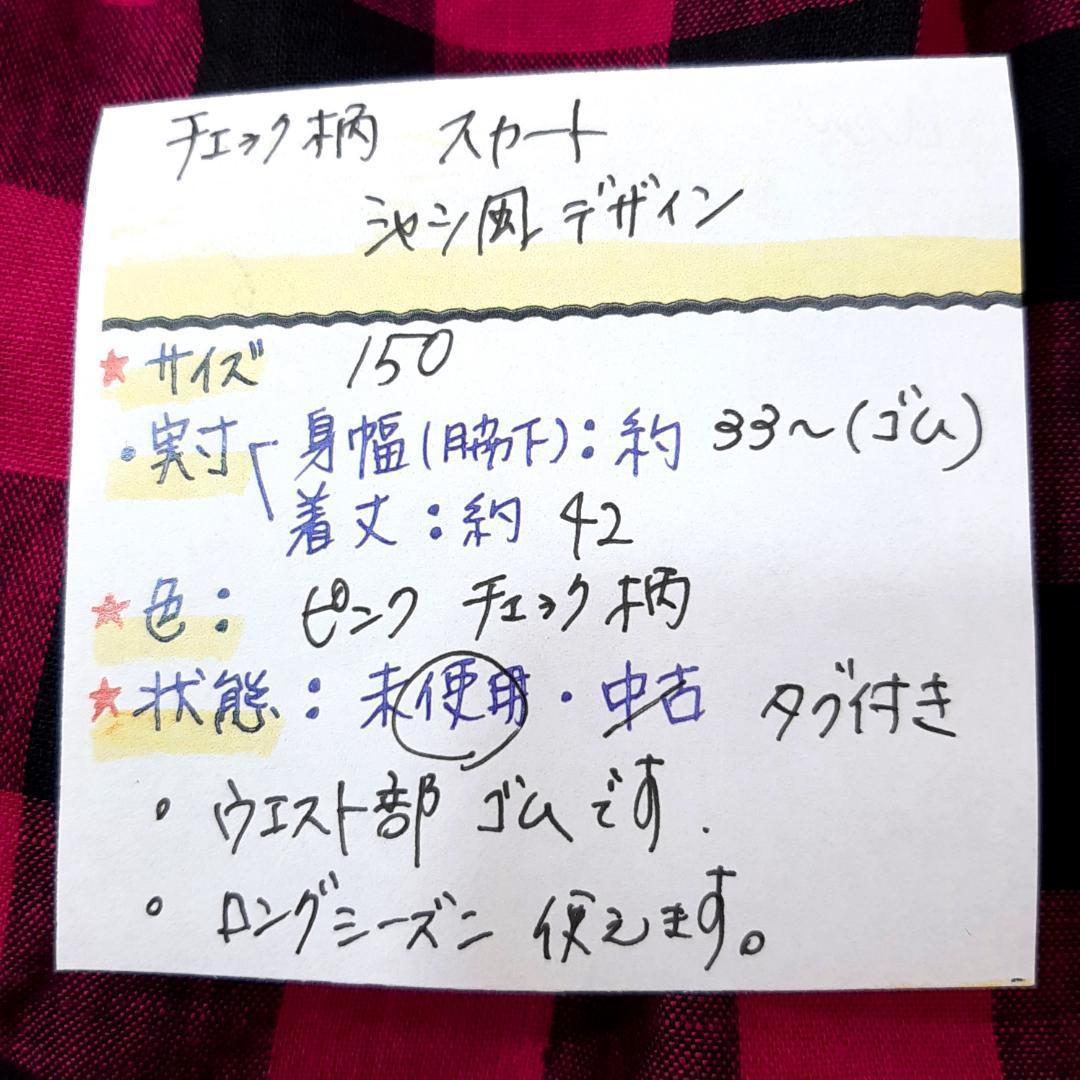 チェック柄 スカート
シャツ風デザイン
★サイズ 150
・実寸 身幅(脇下):約 33～(ゴム)
着丈:約 42
★色: ピンク チェック柄
★状態:未使用・中古 タグ付き
・ウエスト部 ゴムです.
・ロングシーズン 使えます。